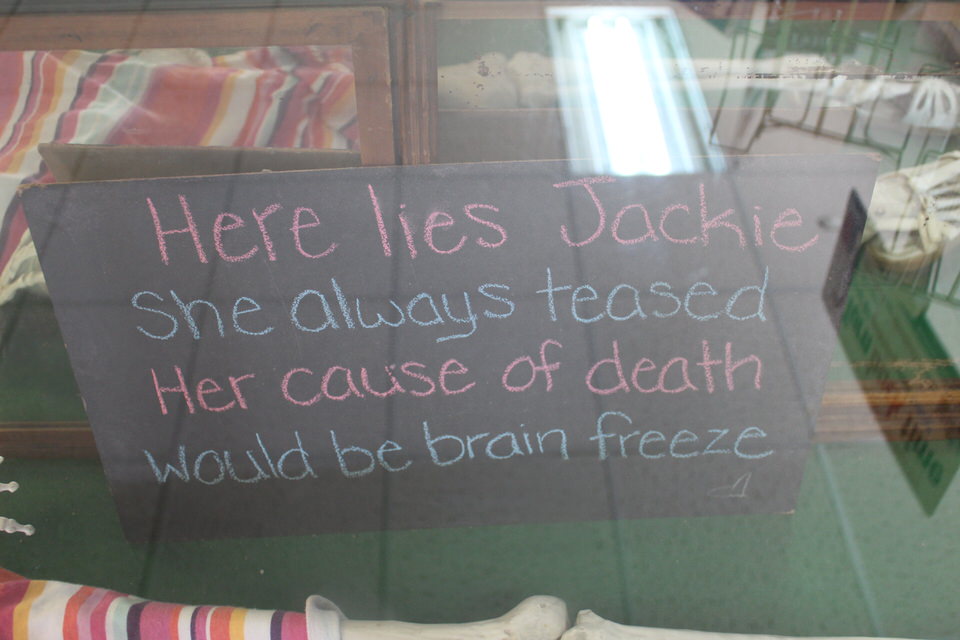 Here lies Jackie
She always teased
Her cause of death
would be brain freeze